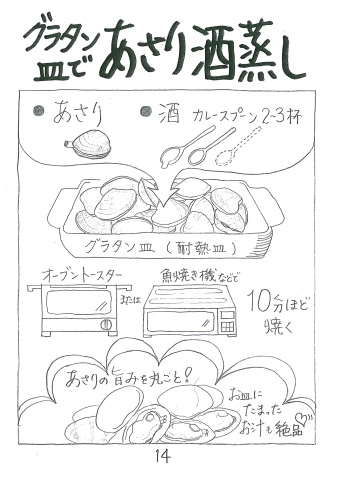 グラタン皿で あさり酒蒸し
●あさり
●酒 カレースプーン2~3杯
グラタン皿(耐熱皿)
オーブントースター
または
魚焼き機などで
10分ほど
焼く
あさりの旨みを丸ごと!
お皿に
たまった
お汁も絶品♡
14